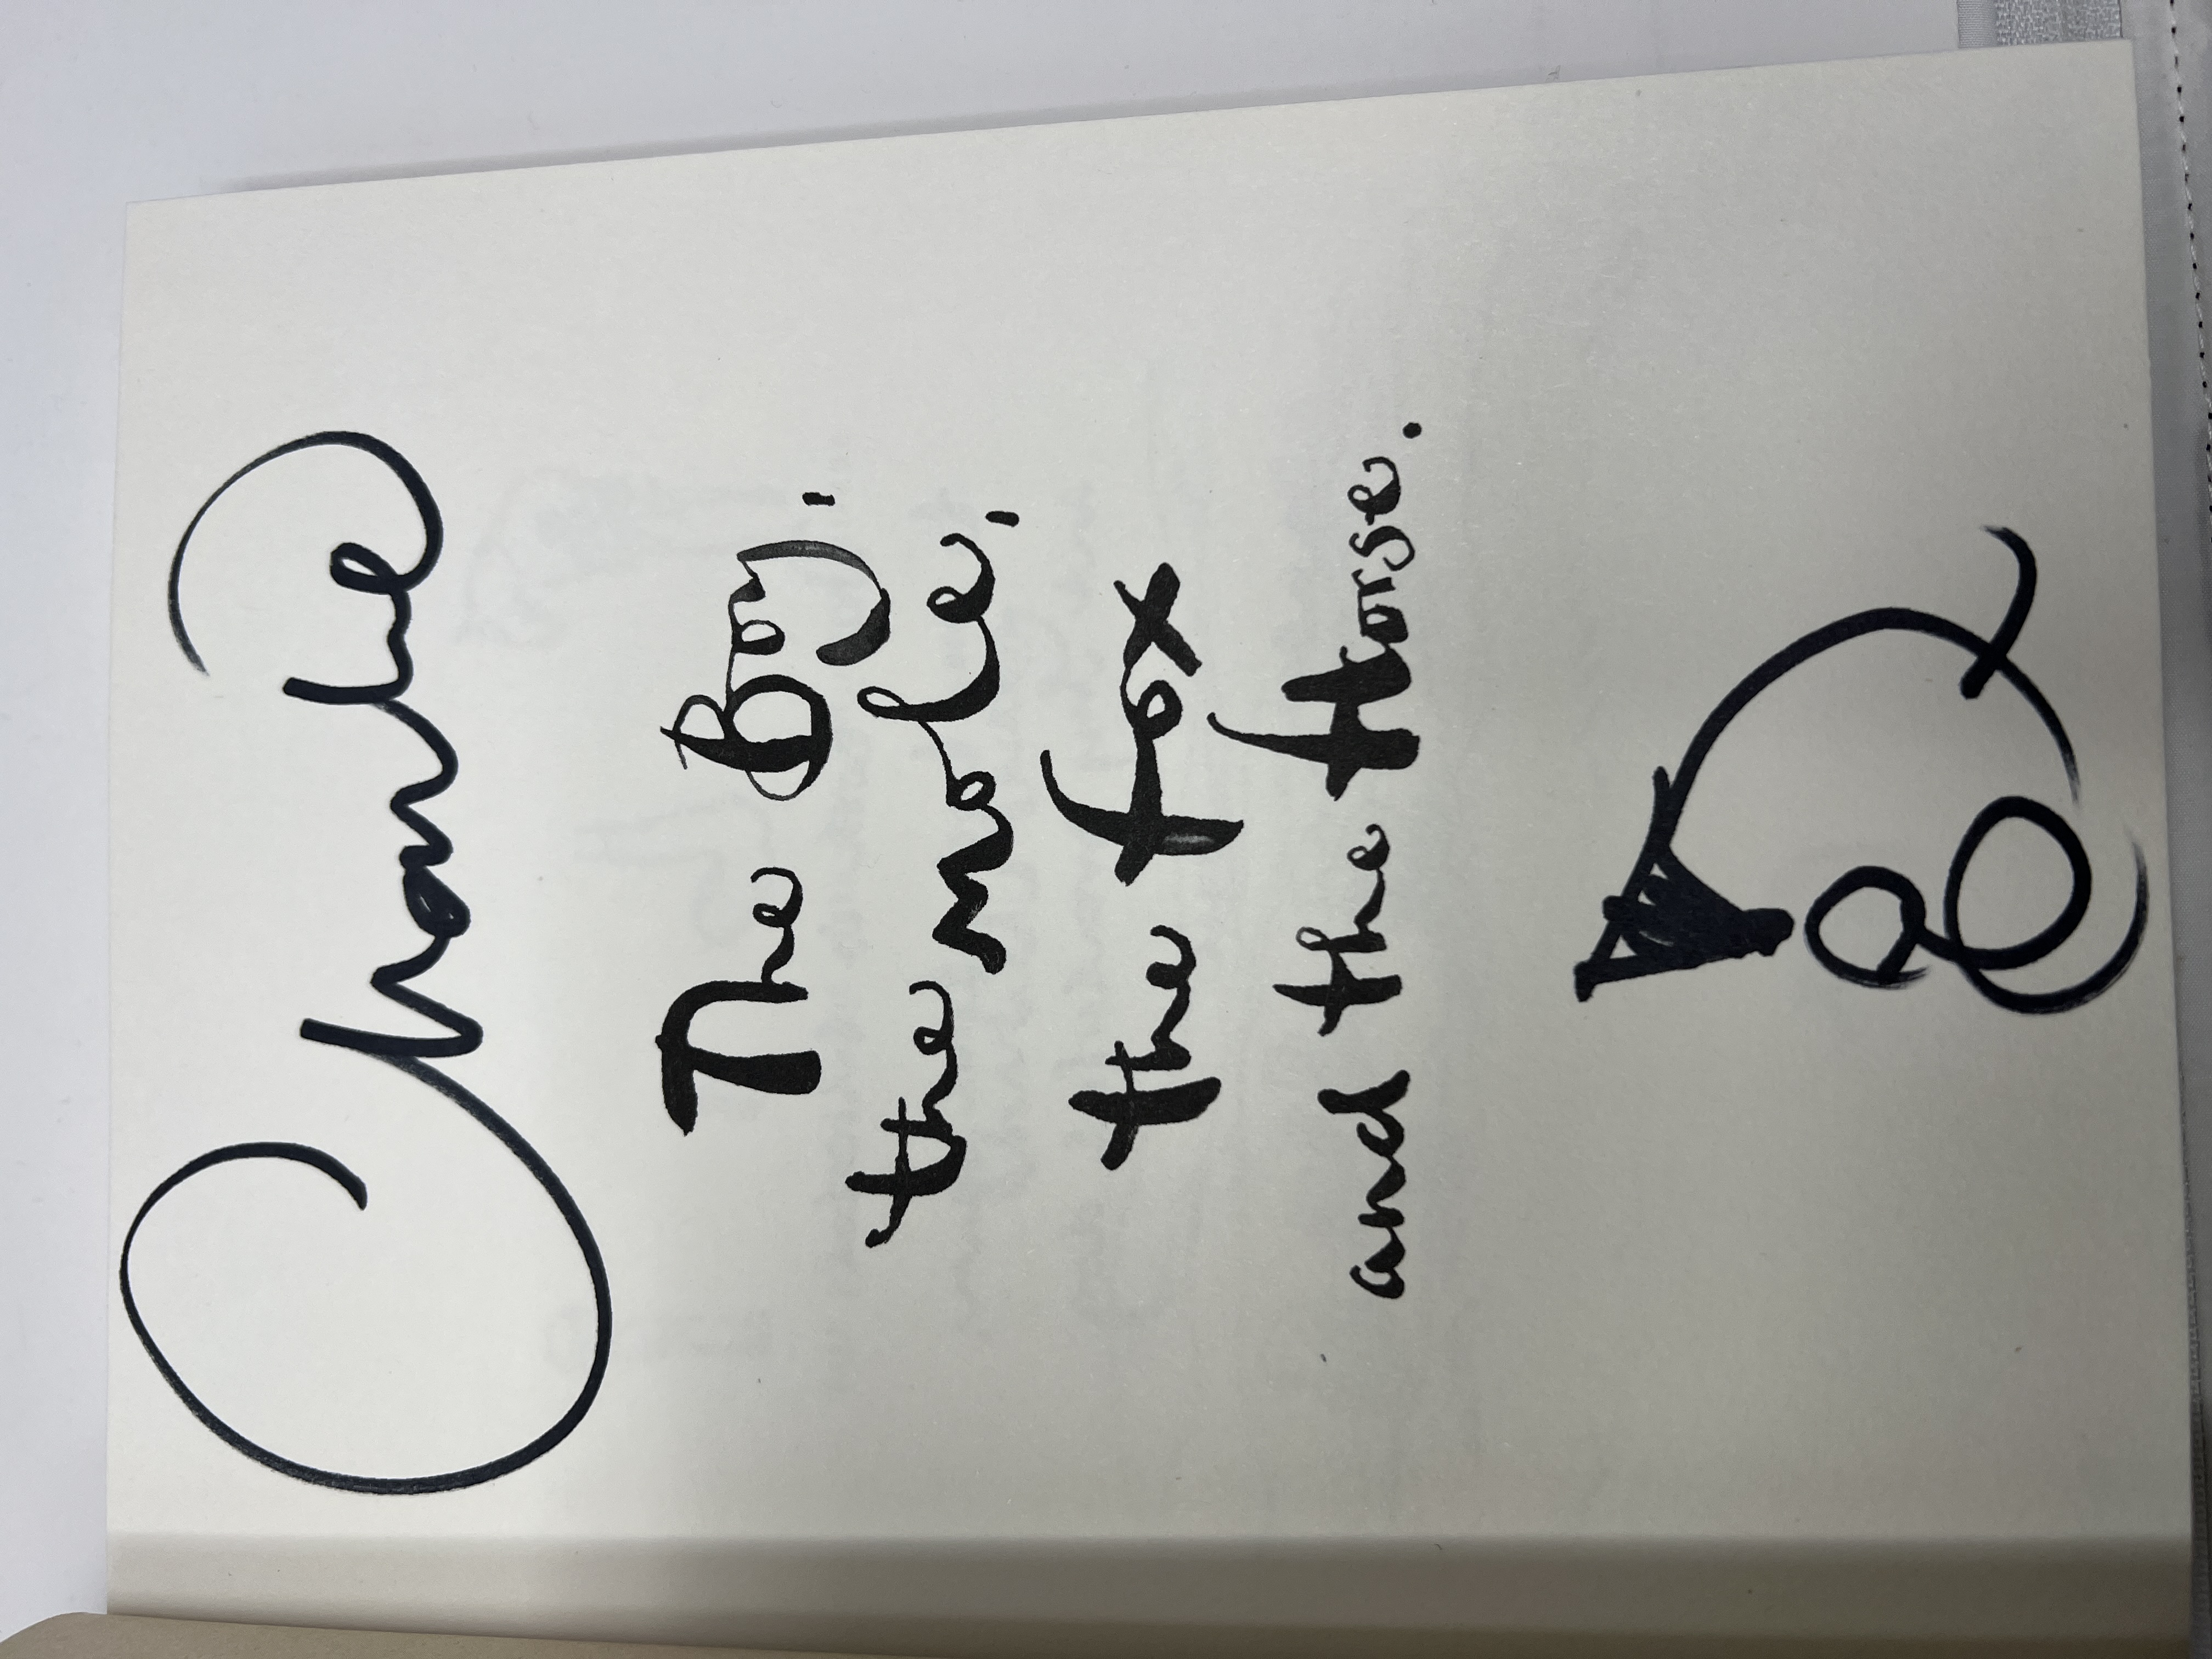 Charlie
The Boy,
the mole,
the fox
and the Horse.